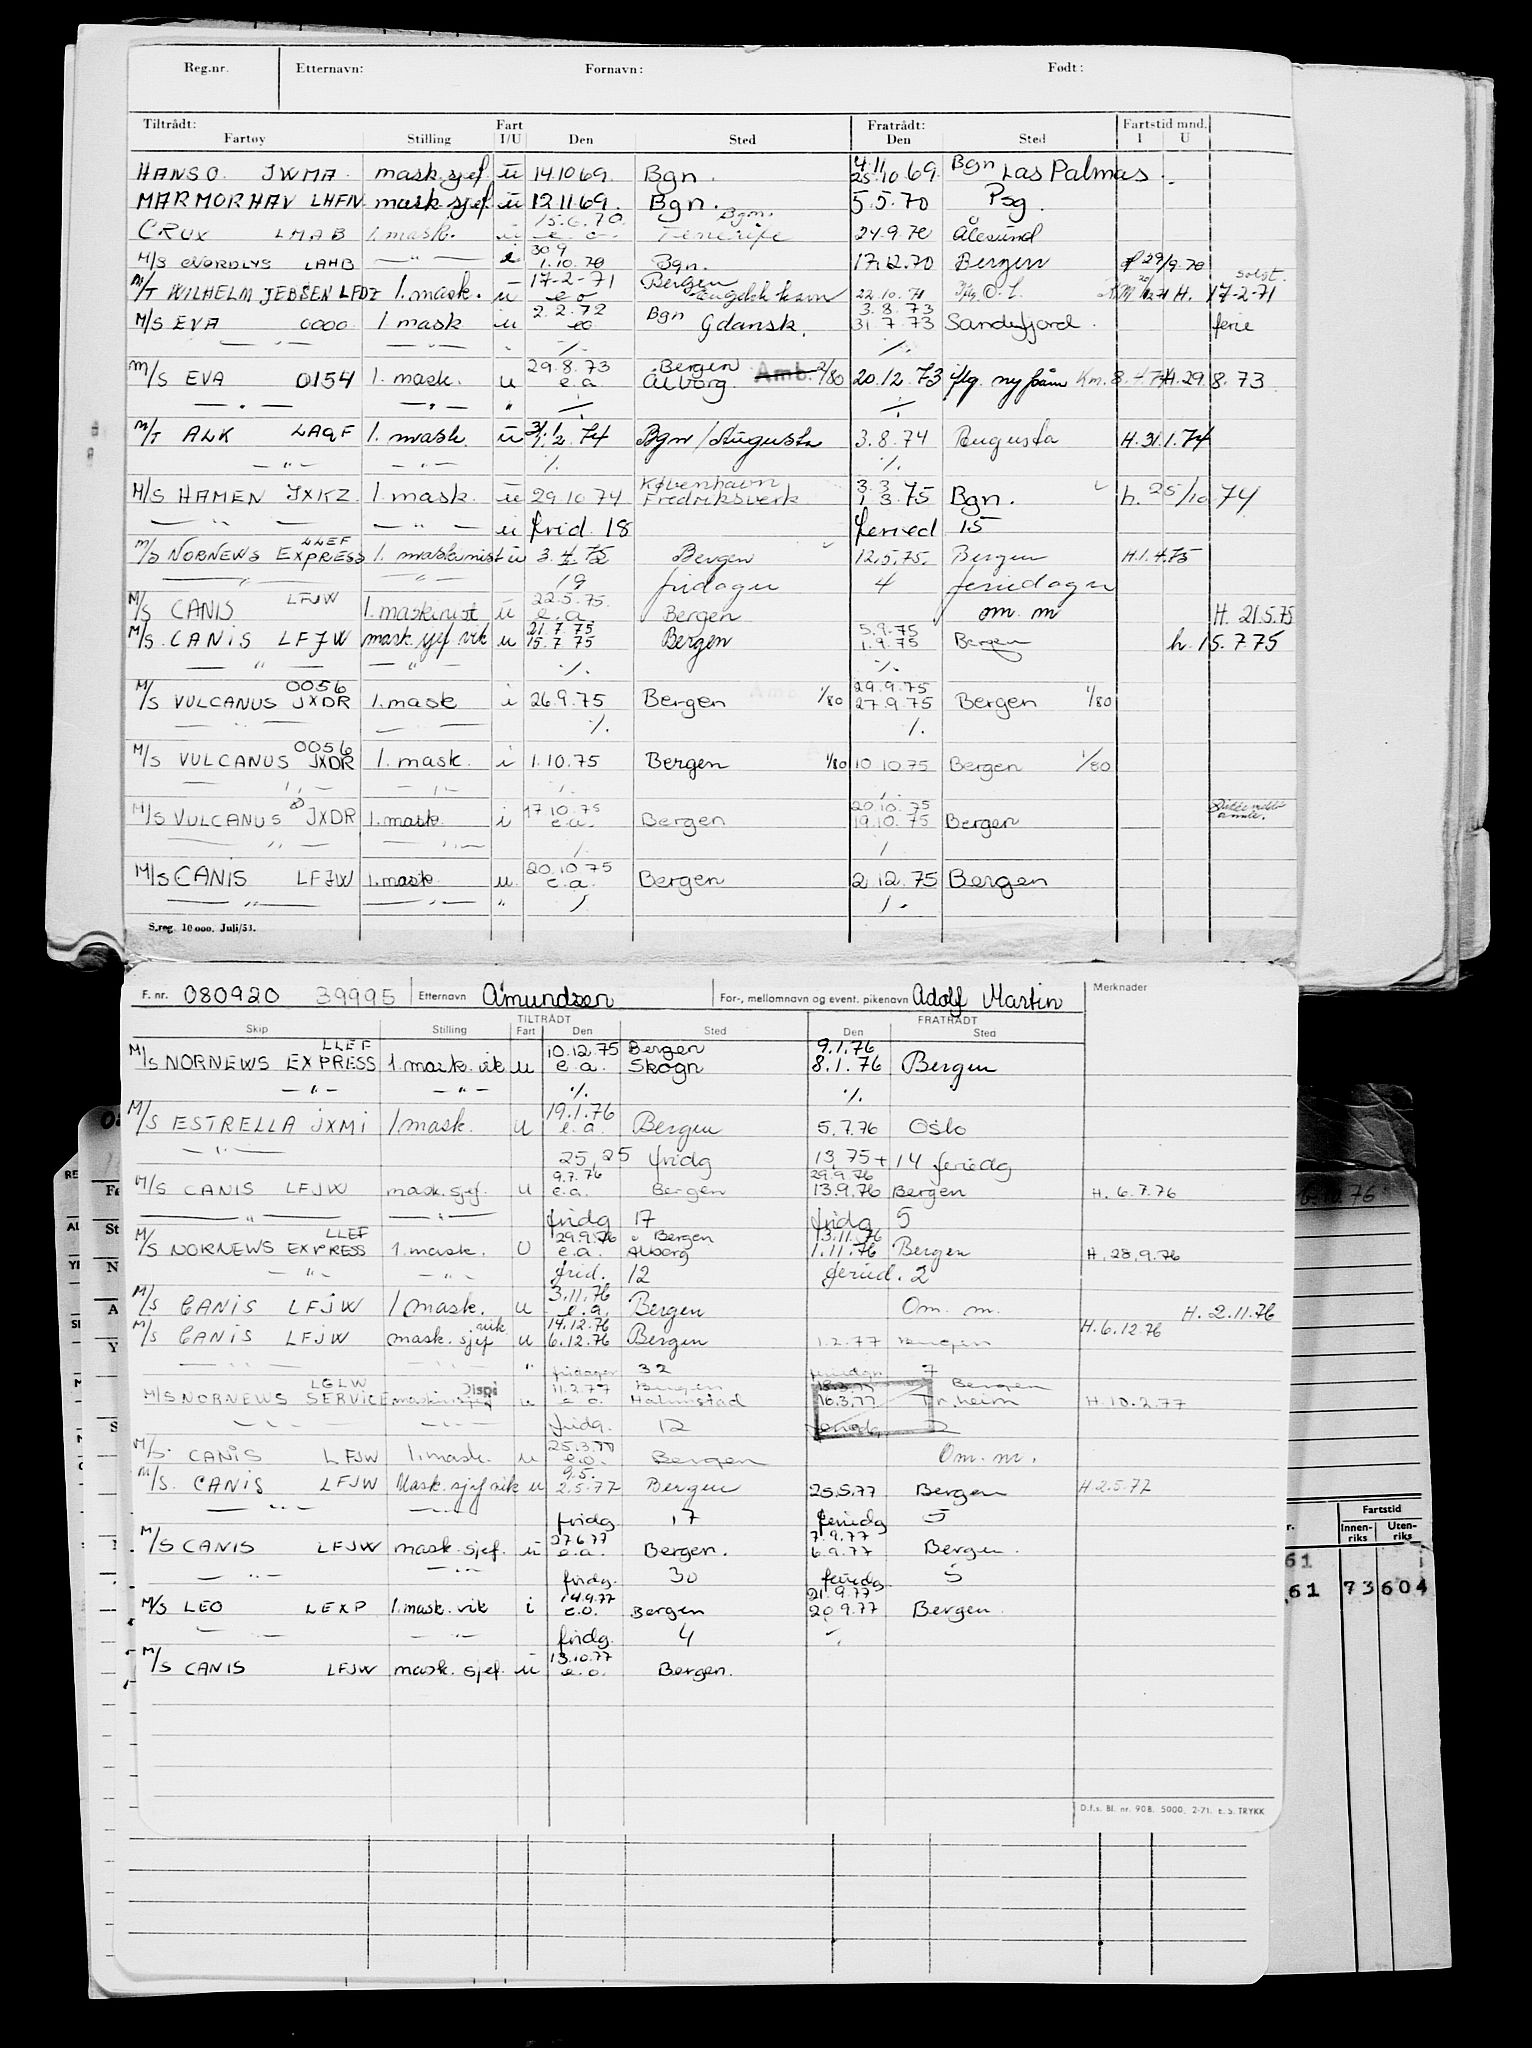 Reg.nr. Etternavn: Fornavn: Født:
Tiltrådt: Fart Fratrådt: Fartstid mnd.
Fartøy Stilling I/U Den Sted Den Sted I U
4.11
HANSO. JWMA. mask.sjef ü 14.10 69. Bgn. 25.10 69. Bgn Las Palmas.
MARMORHAV LHFN mask.sjef. ü 12.11 69. Bgn. 5.5.70 Psg.
15.6.70. Bgn.
CRUX LMAB 1. mask. ü e.o. Tenerife 24.9.70 Ålesund
30.9
M/S NORDLYS LAHB — " — i 1.10.70 Bgn. 17.12.70 Bergen 29/9.70
17-2-71 Bergen solgt.
M/T WILHELM JEBSEN LFDZ 1. mask. u e.o Engelsk havn 22.10.71 H. 17-2-71
2.2.72 3.8.73
M/S EVA 0000 1 mask u eo Bgn Gdansk. 31.7.73 Sandefjord. ferie
— " — — " — " ./. ./.
29.8.73 Bergen
M/S EVA 0154 1. mask. u e.a Ålborg. Amb. 2/80 20.12.73 iflg. ny Km. 8.4.74 H. 29.8.73
— " — — " — " ./. ./.
31.1
M/T ALK LAQF 1. mask. ü 1.2.74 Bgn/Augusta 3.8.74 Augusta H. 31.1.74
— " — — " — ./. ./.
København 3.3
M/S HAMEN JXKZ 1. mask. ü 29.10.74 Fredriksverk 1.3.75 Bgn. h. 25/10 74
— " — — " — u frid. 18 feried 15
LLEF
M/S NORNEWS EXPRESS 1. maskinist u 3.4.75 Bergen 12.5.75. Bergen H.1.4.75
— " — — " — 19 fridager 4 feriedager
22.5.75.
M/S CANIS LFJW 1.maskinist ü e.a. Bergen om. m H. 21.5.75
21.7.75 5.9.75
M/S. CANIS LFJW mask.sjef vik u 15.7.75 Bergen 1.9.75 Bergen h. 15.7.75
— " — — " — ./. ./.
0056 29.9.75
M/S VULCANUS JXDR 1.mask i 26.9.75 Bergen 1/80 27.9.75 Bergen 1/80
— " — — ./. ./.
0056
M/S VULCANUS JXDR 1. mask. i 1.10.75 Bergen 1/80 10 10.75 Bergen 1/80
— " — — " — ./. ./.
17.10.75 20.10.75
M/S VULCANUS JXDR 1.mask. i e.a. Bergen 19.10.75 Bergen
— " — — " — ./. ./.
20.10.75
M/S CANIS LFJW 1.mask. u e.a. Bergen 2.12.75 Bergen
— " — — " — " ./. ./.
S.reg. 10 000. Juli/53.
F. nr. 080920 39995 Etternavn Åmundsen For-, mellomnavn og event. pikenavn Adolf Martin Merknader
TILTRÅDT FRATRÅDT
Skip Stilling Fart Den Sted Den Sted
LLEF 10.12.75 Bergen 9.1.76
M/S NORNEWS EXPRESS 1.mask.vik u e.a. Skogn 8.1.76 Bergen
— " — — " — ./. ./.
19.1.76
M/S ESTRELLA JXMI 1.mask. u e.a. Bergen 5.7.76 Oslo
— " — 25,25 fridg 13,75 + 14 feriedg
9.7.76 29.9.76
M/S CANIS LFJW mask.sjef. u e.a. Bergen 13.9.76 Bergen H. 6.7.76
— " — — " — fridg 17 fridg 5
LLEF 29.9.76 Bergen 13.11.76
M/S NORNEWS EXPRESS 1.mask. U e.a. Alborg 1.11.76 Bergen H. 28.9.76
— " — — " — frid. 12 feried. 2
3.11.76
M/S CANIS LFJW 1.mask. u e.a. Bergen Om. m. H. 2.11.76
vik 14.12.76
M/S CANIS LFJW mask.sjef u 6.12.76 Bergen 1.2.77 Bergen H. 6.12.76
— " — — " — " fridager 32 feriedgr 7
LGLW Disp 11.2.77 Bergen 18.3.77 Bergen
M/S NORNEWS SERVICE maskinsjef u e.o. Halmstad 16.3.77 Tr.heim H. 10.2.77
— " — — " — fridg. 12 feriedg 2
25.3.77
M/S. CANIS LFJW 1.mask. u e.o. Bergen Om. m.
9.5.
M/S. CANIS LFJW Mask.sjef vik u 2.5.77 Bergen 25.5.77 Bergen H.2.5.77
— " — — " — fridg. 17 feriedg 5
27.6.77 7.9.77
M/S CANIS LFJW mask.sjef. u e.a. Bergen. 6.9.77 Bergen.
— " — — " — fridg. 30 feriedg. 5
14.9.77 21.9.77
M/S LEO LEXP 1.mask.vik i e.o. Bergen 20.9.77 Bergen.
— " — — " — fridg. 4 ./.
13.10.77
M/S CANIS LFJW mask.sjef. ü e.o. Bergen.
D.f.s. Bl. nr. 90B. 5000. 2-71. E. S. TRYKK
Fartstid
Innen-riks Uten-riks
61
61 73 604